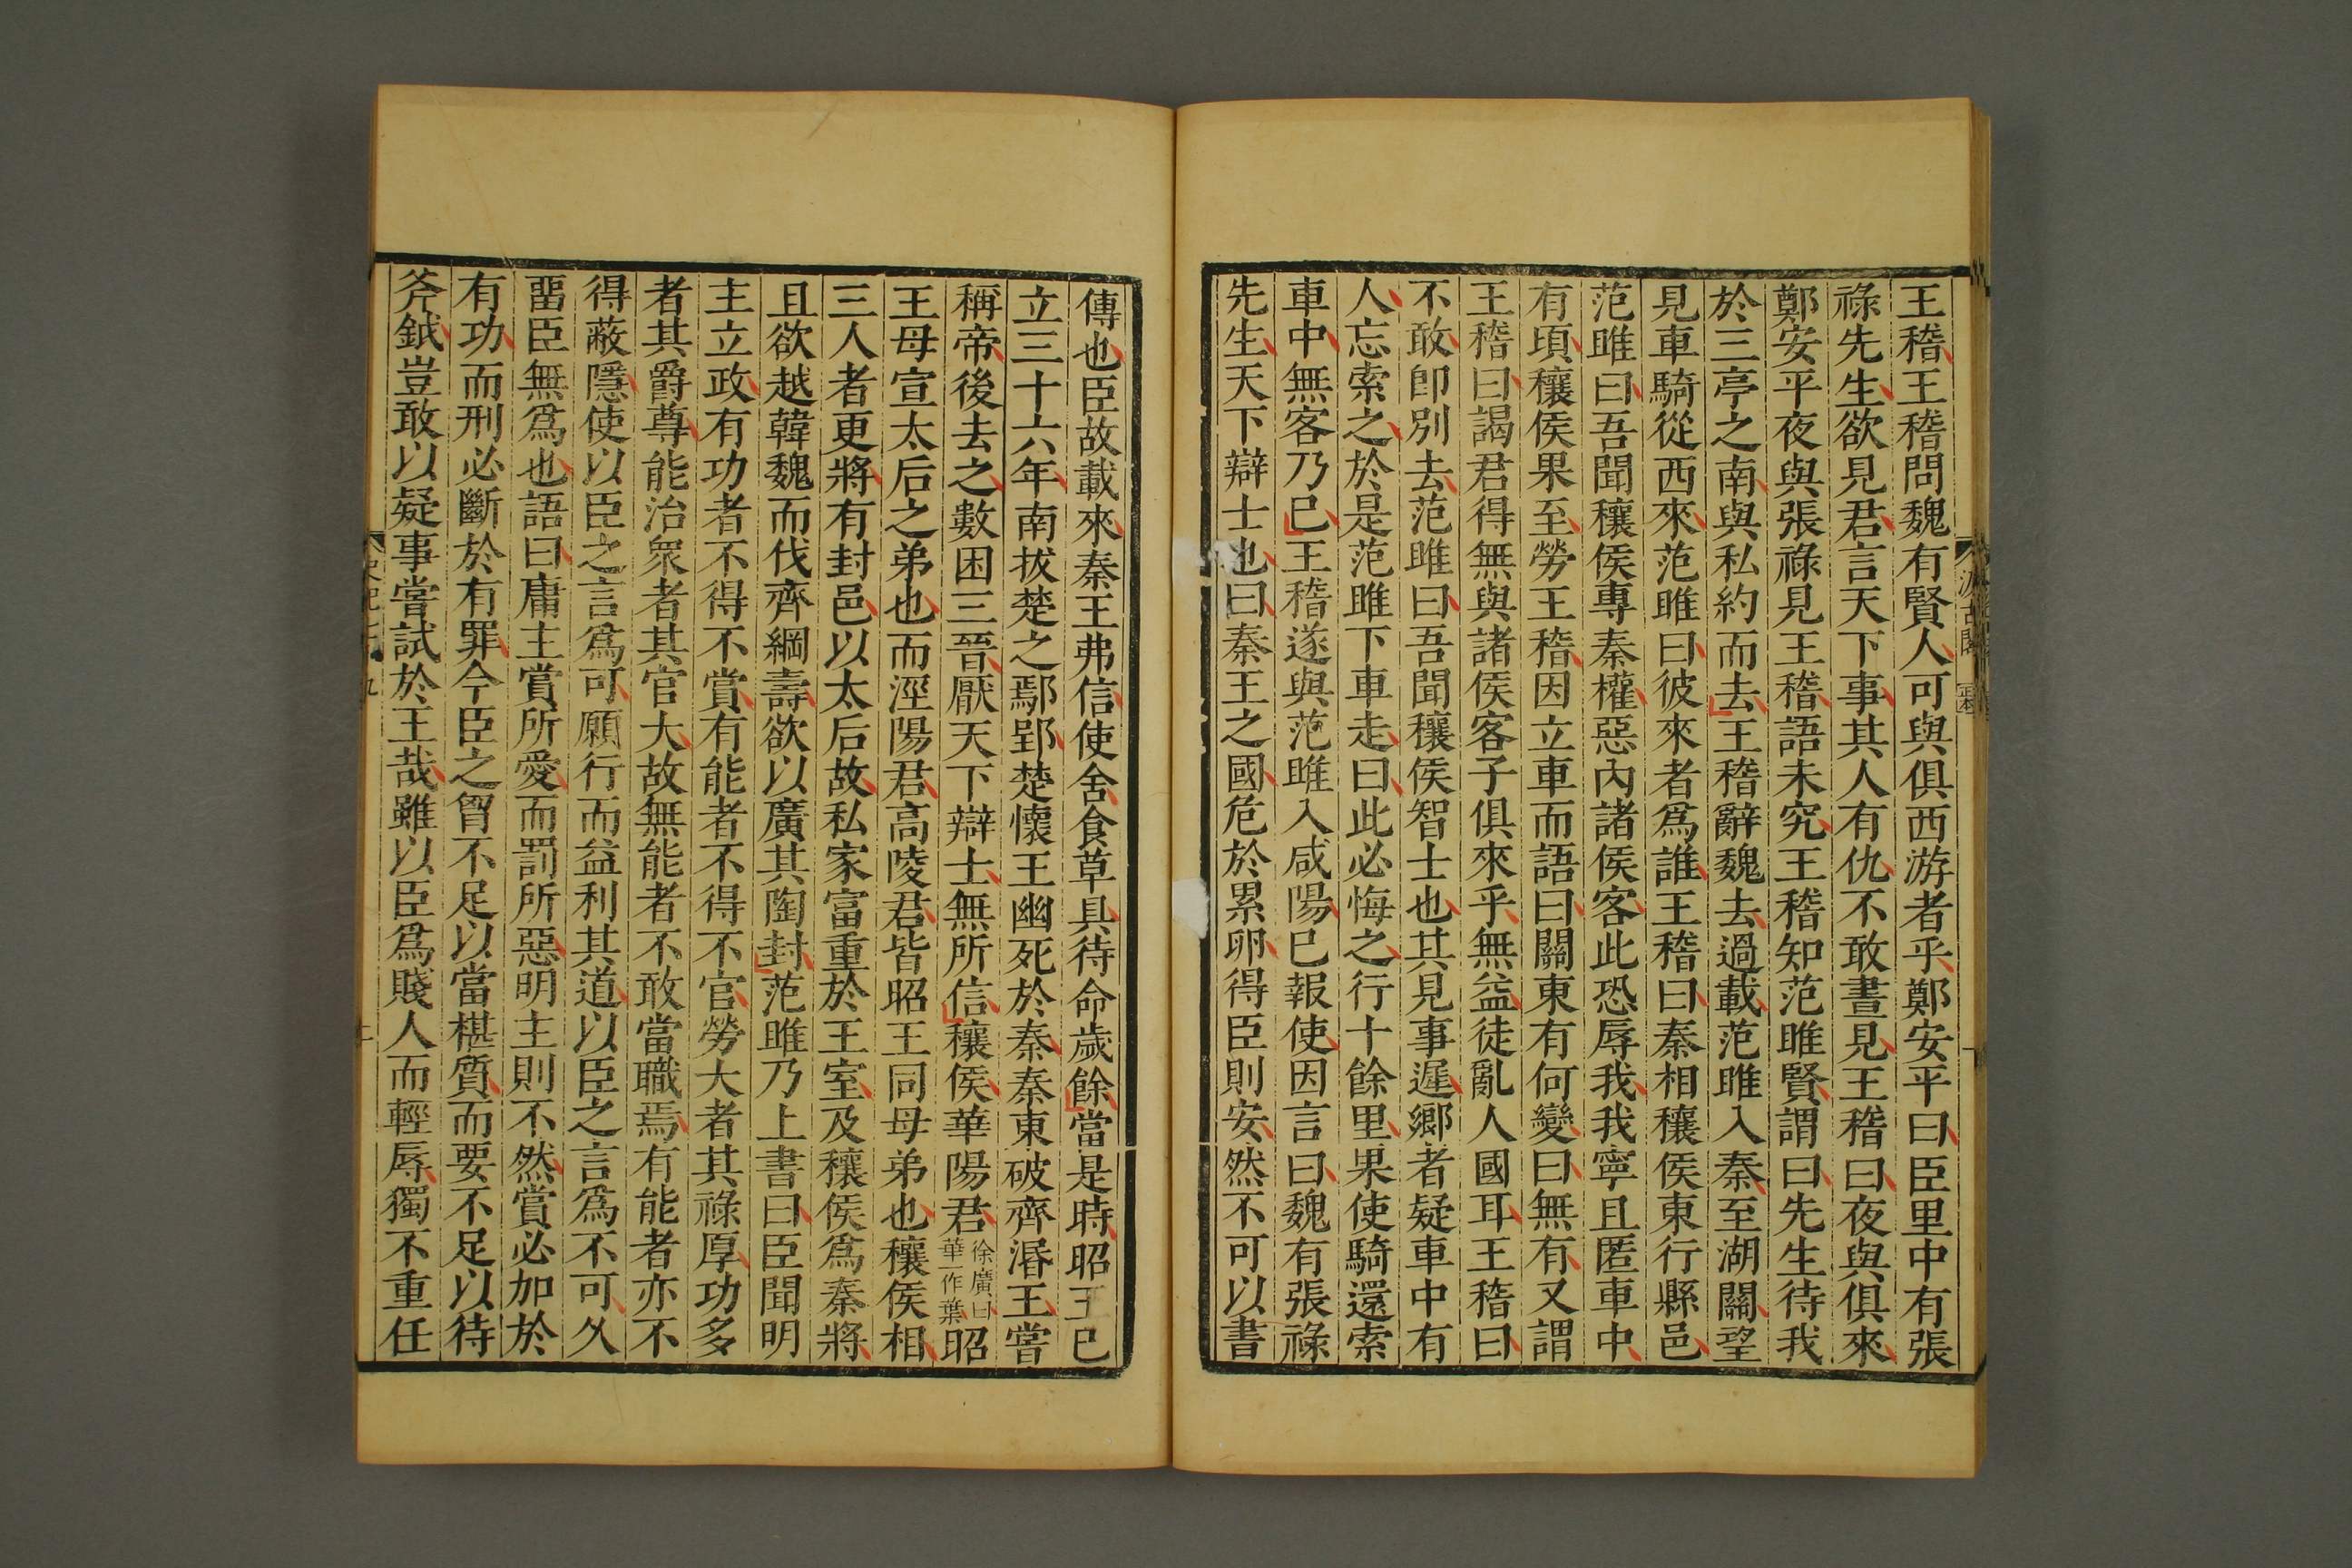 王稽王稽問魏有賢人可與俱西游者乎鄭安平曰臣里中有張
祿先生欲見君言天下事其人有仇不敢晝見王稽曰夜與俱來
鄭安平夜與張祿見王稽語未究王稽知范雎賢謂曰先生待我
於三亭之南與私約而去王稽辭魏去過載范雎入秦至湖關望
見車騎從西來范雎曰彼來者爲誰王稽曰秦相穰侯東行縣邑
范雎曰吾聞穰侯專秦權惡內諸侯客此恐辱我我寧且匿車中
有頃穰侯果至勞王稽因立車而語曰關東有何變曰無有又謂
王稽曰謁君得無與諸侯客子俱來乎無益徒亂人國耳王稽曰
不敢卽別去范雎曰吾聞穰侯智士也其見事遲鄉者疑車中有
人忘索之於是范雎下車走曰此必悔之行十餘里果使騎還索
車中無客乃已王稽遂與范雎入咸陽已報使因言曰魏有張祿
先生天下辯士也曰秦王之國危於累卵得臣則安然不可以書
傳也臣故載來秦王弗信使舍食草具待命歲餘當是時昭王已
立三十六年南拔楚之鄢郢楚懷王幽死於秦秦東破齊湣王嘗
稱帝後去之數困三晉厭天下辯士無所信穰侯華陽君徐廣曰華一作葉昭
王母宣太后之弟也而涇陽君高陵君皆昭王同母弟也穰侯相
三人者更將有封邑以太后故私家富重於王室及穰侯爲秦將
且欲越韓魏而伐齊綱壽欲以廣其陶封范雎乃上書曰臣聞明
主立政有功者不得不賞有能者不得不官勞大者其祿厚功多
者其爵尊能治衆者其官大故無能者不敢當職焉有能者亦不
得蔽隱使以臣之言爲可願行而益利其道以臣之言爲不可久
畱臣無爲也語曰庸主賞所愛而罰所惡明主則不然賞必加於
有功而刑必斷於有罪今臣之胷不足以當椹質而要不足以待
斧鉞豈敢以疑事嘗試於王哉雖以臣爲賤人而輕辱獨不重任